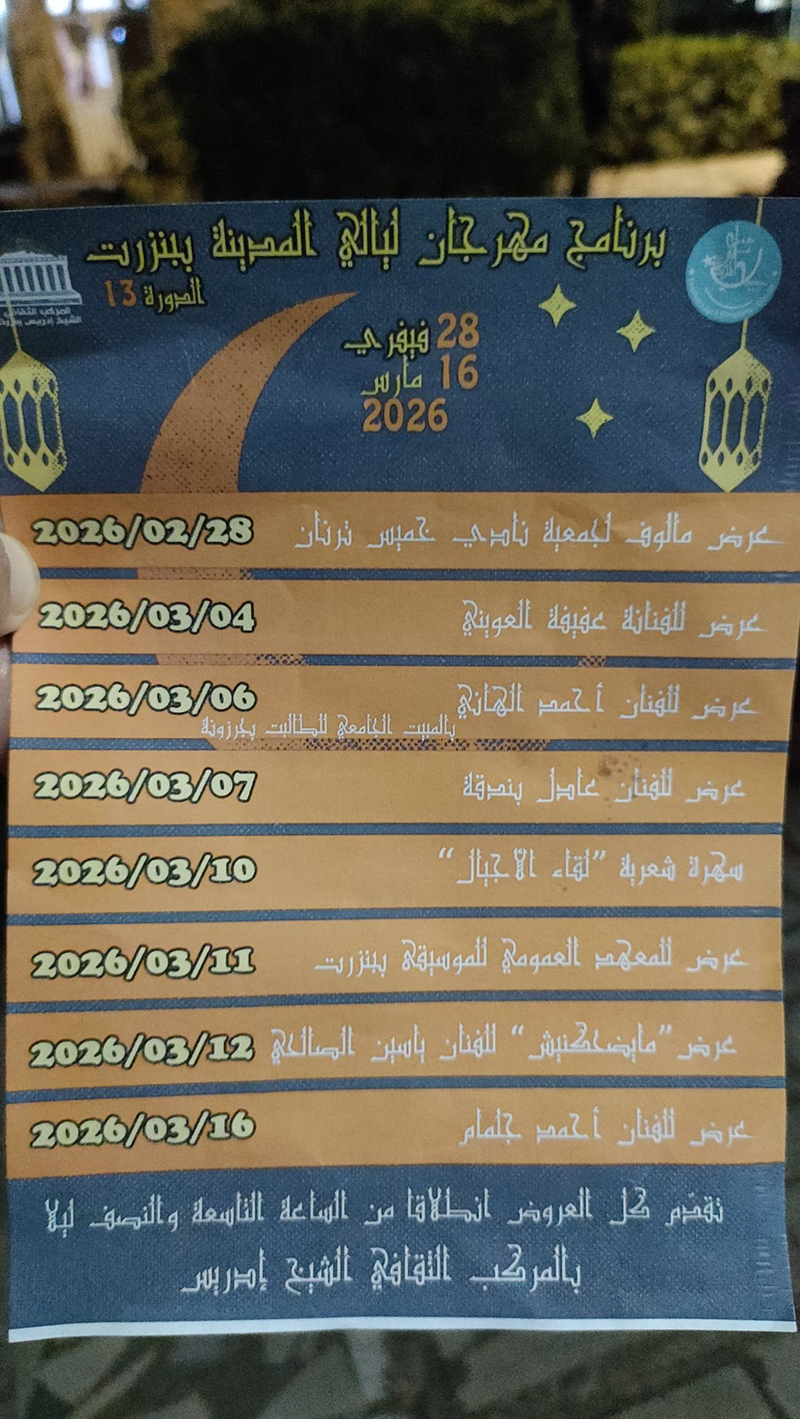 برنامج مهرجان ليالي المدينة ببنزرت
الدورة 13
المركب الثقافي
الشيخ إدريس ببنزرت
28 فيفري
16 مارس
2026
عرض مالوف لجمعية نادي خميس ترنان 2026/02/28
عرض للفنانة عفيفة العويني 2026/03/04
عرض للفنان أحمد الهاني 2026/03/06
بالمبيت الجامعي للطالبت بجرزونة
عرض للفنان عادل بندقة 2026/03/07
سهرة شعرية ”لقاء الأجيال“ 2026/03/10
عرض للمعهد العمومي للموسيقى ببنزرت 2026/03/11
عرض ”مايضحكنيش“ للفنان ياسين الصالحي 2026/03/12
عرض للفنان أحمد جلمام 2026/03/16
تقدّم كل العروض انطلاقا من الساعة التاسعة والنصف ليلا
بالمركب الثقافي الشيخ إدريس